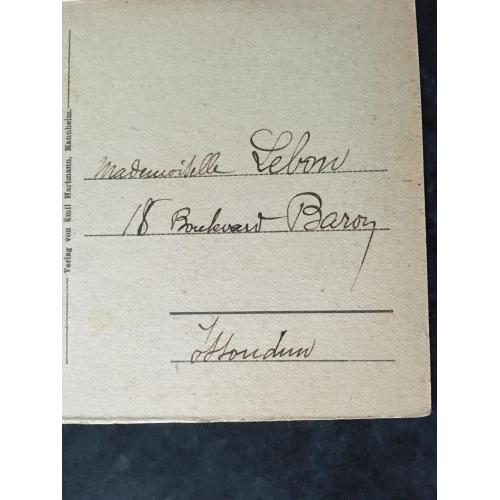 Verlag von Emil Hartmann, Mannheim.
Mademoiselle Lebon
18 Boulevard Baron
Issoudun